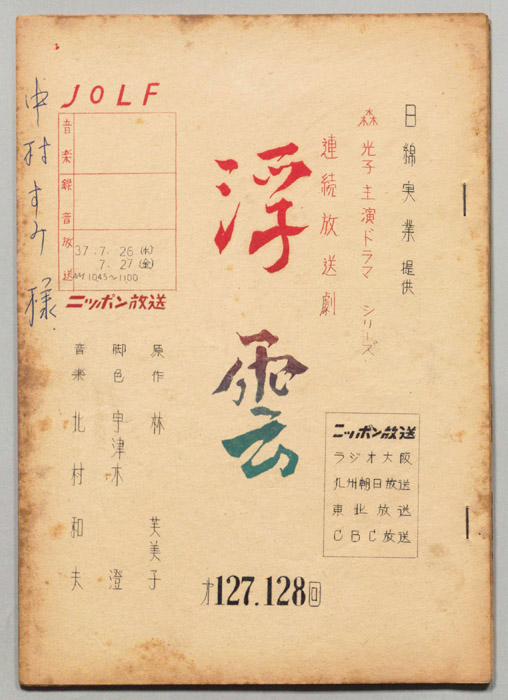 日綿実業 提供
森光子主演ドラマ シリーズ
連続放送劇
浮雲
JOLF
音楽
録音
放送
37.7.26(水)
7.27(金)
1045〜1100
ニッポン放送
中村すみ様
原作 林 芙美子
脚色 宇津木 澄
音楽 北村和夫
ニッポン放送
ラジオ大阪
九州朝日放送
東北放送
CBC放送
才127.128回